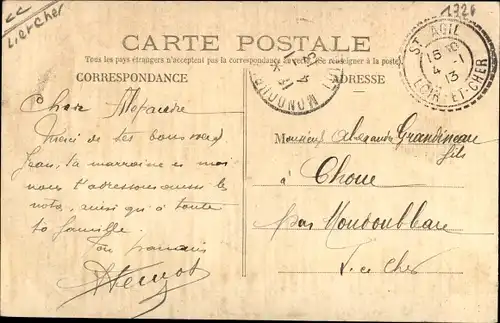 Lier cher
1326
CARTE POSTALE
Tous les pays étrangers n'acceptent pas la correspondance au verso (Se renseigner à la poste).
CORRESPONDANCE
ADRESSE
ST AGIL
15
4 - 1
13
LOIR-ET-CHER
MONDOUBLEAU
Cher Alexandre
Merci de tes bons vœux
Jean, ta marraine et moi
nous t'adressons aussi les
nôtres, ainsi qu'à toute
ta famille.
Ton parrain
Monsieur Alexandre Grandineau
fils
à Choue
par Mondoubleau
L. et Cher